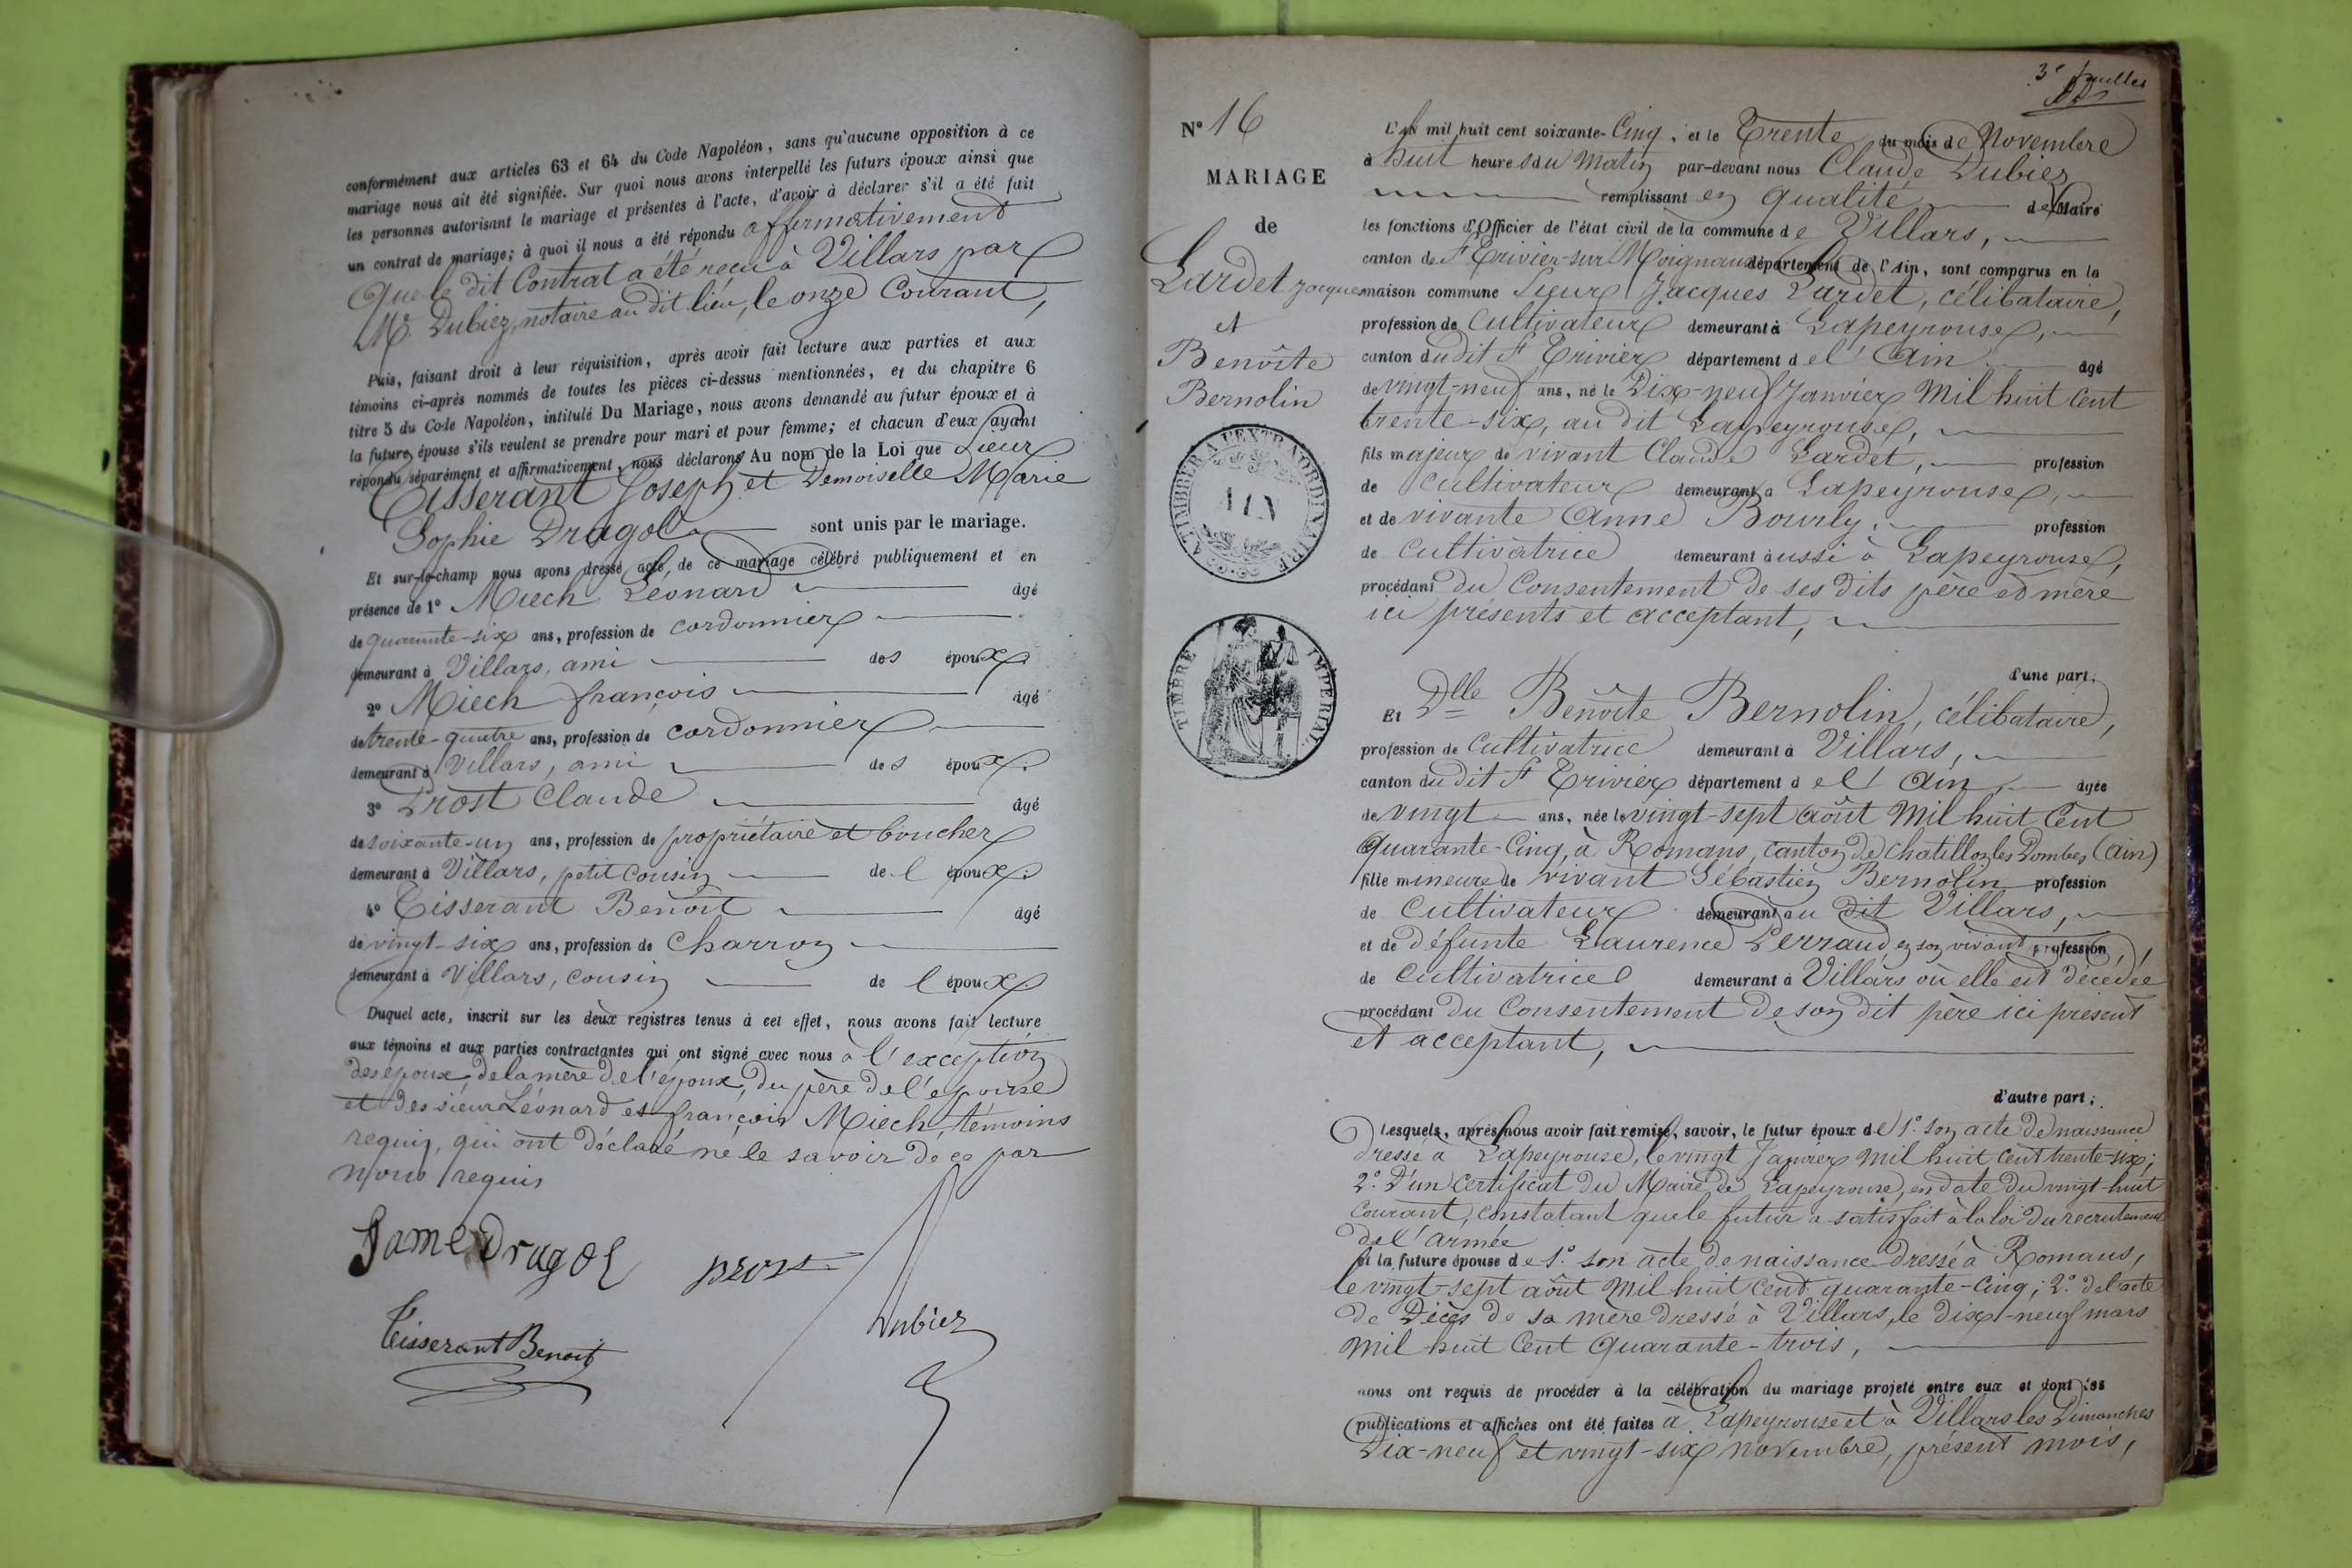 conformément aux articles 63 et 64 du Code Napoléon, sans qu'aucune opposition à ce
mariage nous ait été signifiée. Sur quoi nous avons interpellé les futurs époux ainsi que
les personnes autorisant le mariage et présentes à l'acte, d'avoir à déclarer s'il a été fait
un contrat de mariage; à quoi il nous a été répondu affirmativement
Que le dit Contrat a été reçu à Villars par
Me Dubiez, notaire au dit lieu, le onze Courant,
Puis, faisant droit à leur réquisition, après avoir fait lecture aux parties et aux
témoins ci-après nommés de toutes les pièces ci-dessus mentionnées, et du chapitre 6
titre 5 du Code Napoléon, intitulé Du Mariage, nous avons demandé au futur époux et à
la future épouse s'ils veulent se prendre pour mari et pour femme; et chacun d'eux ayant
répondu séparément et affirmativement, nous déclarons Au nom de la Loi que Sieur
Tisserant Joseph et Demoiselle Marie
Sophie Dragol sont unis par le mariage.
Et sur-le-champ nous avons dressé acte de ce mariage célébré publiquement et en
présence de 1° Miech Léonard âgé
de quarante-six ans, profession de cordonnier
demeurant à Villars, ami des époux.
2° Miech françois âgé
de trente-quatre ans, profession de cordonnier
demeurant à Villars, ami des époux.
3° Prost Claude âgé
de soixante-un ans, profession de propriétaire et boucher
demeurant à Villars, petit cousin de l époux.
4° Tisserant Benoit âgé
de vingt-six ans, profession de Charron
demeurant à Villars, cousin de l époux.
Duquel acte, inscrit sur les deux registres tenus à cet effet, nous avons fait lecture
aux témoins et aux parties contractantes qui ont signé avec nous à l'exception
des époux, de la mère de l'époux, du père de l'épouse
et des sieurs Léonard et françois Miech, témoins
requis, qui ont déclaré ne le savoir de ce par
nous requis
Jame Dragol prost
Tisserant Benoit
Dubiez
3e feuillet
N° 16
MARIAGE
de
Lardet Jacques
et
Benoîte
Bernolin
A TIMBRER A L'EXTRAORDINAIRE
AIN
TIMBRE IMPERIAL
L'AN mil huit cent soixante-Cinq, et le Trente du mois de Novembre
à huit heures du Matin par-devant nous Claude Dubiez
remplissant en qualité de Maire
les fonctions d'Officier de l'état civil de la commune de Villars,
canton de St Trivier-sur Moignans département de l'Ain, sont comparus en la
maison commune Sieur Jacques Lardet, célibataire,
profession de Cultivateur demeurant à Lapeyrouse,
canton du dit St Trivier département de l'Ain âgé
de vingt-neuf ans, né le Dix-neuf Janvier Mil huit Cent
trente-six, au dit Lapeyrouse,
fils majeur de vivant Claude Lardet, profession
de Cultivateur demeurant à Lapeyrouse,
et de vivante Anne Bourly. profession
de Cultivatrice demeurant aussi à Lapeyrouse,
procédant du Consentement de ses dits père et mère
ici présents et acceptant,
d'une part;
Et Dlle Benoîte Bernolin, célibataire,
profession de Cultivatrice demeurant à Villars,
canton du dit St Trivier département de l'Ain, âgée
de vingt ans, née le vingt-sept août Mil huit Cent
quarante-Cinq, à Romans, canton de Chatillon les Dombes (Ain)
fille mineure de vivant Sébastien Bernolin profession
de Cultivateur demeurant au dit Villars,
et de défunte Laurence Perraud, en son vivant profession
de Cultivatrice demeurant à Villars où elle est décédée
procédant du Consentement de son dit père ici présent
et acceptant,
d'autre part;
Lesquels, après nous avoir fait remise, savoir, le futur époux de 1°. son acte de naissance
dressé à Lapeyrouse, le vingt Janvier Mil huit Cent trente-six;
2°. D'un Certificat du Maire de Lapeyrouse, en date du vingt-huit
Courant, constatant que le futur a satisfait à la loi du recrutement
de l'armée
Et la future épouse de 1°. son acte de naissance dressé à Romans,
le vingt-sept août Mil huit Cent quarante-Cinq; 2°. de l'acte
de Décès de sa mère dressé à Villars, le dix-neuf mars
Mil huit Cent quarante-trois,
nous ont requis de procéder à la célébration du mariage projeté entre eux et dont les
publications et affiches ont été faites à Lapeyrouse et à Villars les Dimanches
Dix-neuf et vingt-six novembre, présent mois,